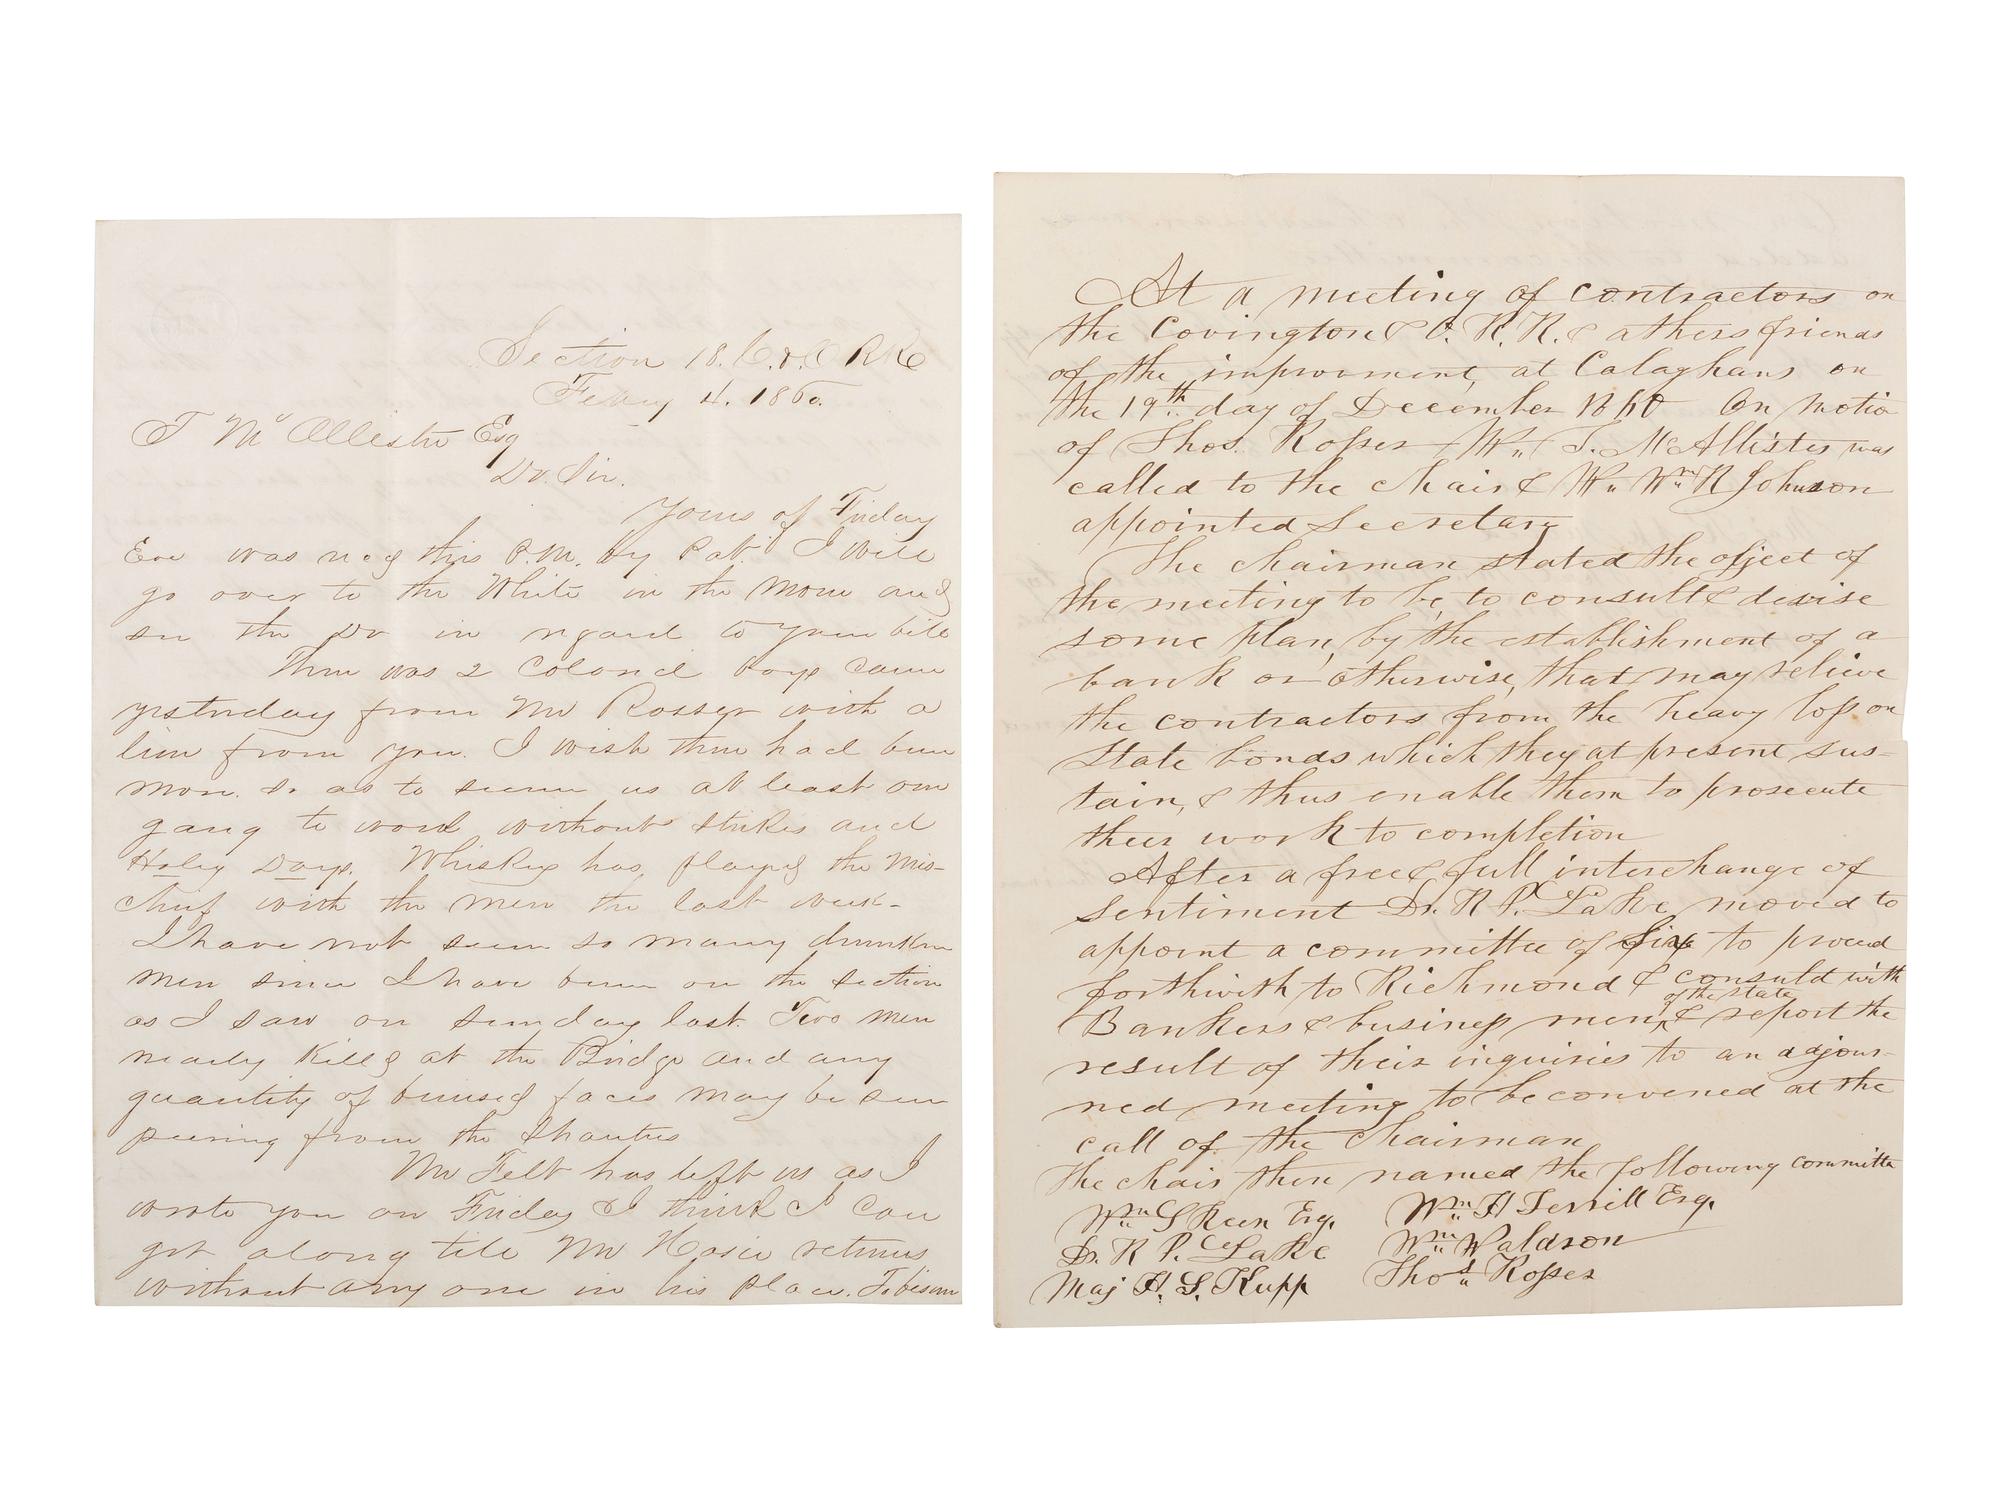 Section 18. C. & O RR
Feby 4. 1860.
T McAllister Esq
Dr. Sir.
Yours of Friday
Eve was recd this P.M. by Pat. I will
go over to the White in the Morn and
see the Dr in regard to your bill
There was 2 Colored boys came
yesterday from Mr Rosser with a
line from you. I wish there had been
more. So as to secure us at least one
gang to work without strikes and
Holey Days. Whiskey has, played the Mis-
cheif with the men the last week-
I have not seen so many drunken
men since I have been on the section
as I saw on sunday last. Two men
nearly killed at the Bridge and any
quantity of bruised faces may be seen
peering from the Shanties
Mr Felt has left us as I
wrote you on Friday & I think I can
get along till Mr Hosie returns
without any one in his place.
At a meeting of contractors on
the Covington & O. R. R. & others friends
of the improvment, at Calaghans on
the 19th day of December 1860 On motio
of Thos. Rosser Mr T. McAllister was
called to the chair & Mr Wm R Johnson
appointed Secretary
The chairman stated the object of
the meeting to be, to consult & devise
some plan, by the establishment of a
bank or otherwise, that may relieve
the contractors from the heavy loss on
State bonds which they at present sus-
tain, & thus enable them to prosecute
their work to completion
After a free & full interchange of
sentiment Dr. R P. Lake moved to
appoint a committee of six to proceed
forthwith to Richmond & consuld with
of the state
Bankers & business men, & report the
result of their inquiries to an adjour-
ned meeting to be convened at the
call of the chairman
The chair then named the following committe
Wm S Keen Esq. Wm H Terrill Esq.
Dr. R P. Lake Wm Waldron
Maj H. S. Kupp Thos Rosser